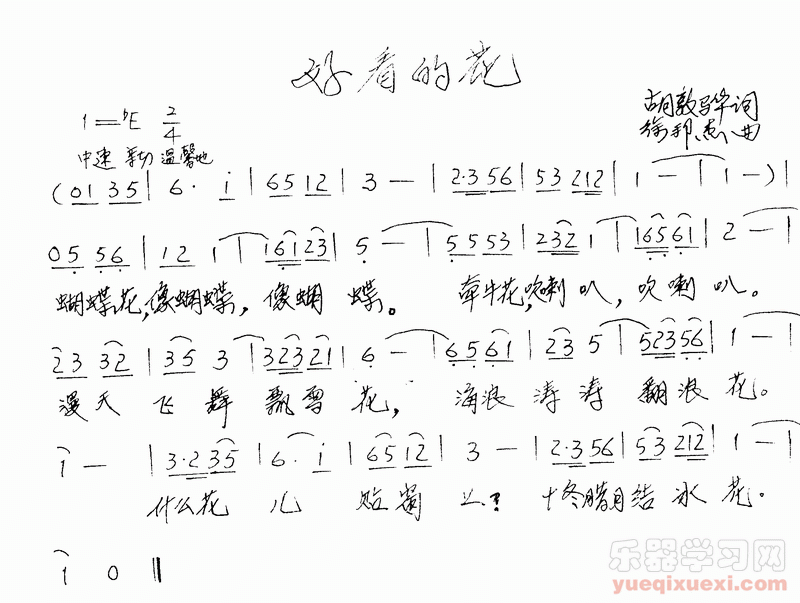 好看的花
1=♭E 2/4
胡敦骅词
中速 亲切 温馨地
徐邦杰曲
(01 35 | 6· i | 65 12 | 3 — | 2·3 56 | 53 212 | 1 — | 1 —) |
05 56 | 12 1 | 161 23 | 5 — | 55 53 | 232 1 | 165 61 | 2 — |
蝴蝶花,像蝴蝶,像蝴蝶。 牵牛花,吹喇叭,吹喇叭。
23 32 | 35 3 | 323 21 | 6 — | 65 61 | 23 5 | 523 56 | 1 — |
漫天飞舞飘雪花, 海浪涛涛翻浪花。
i — | 3·2 35 | 6· i | 65 12 | 3 — | 2·3 56 | 53 212 | 1 — |
什么花儿贴窗上? 十冬腊月结冰花。
i 0 ‖
乐器学习网
yueqixuexi.com